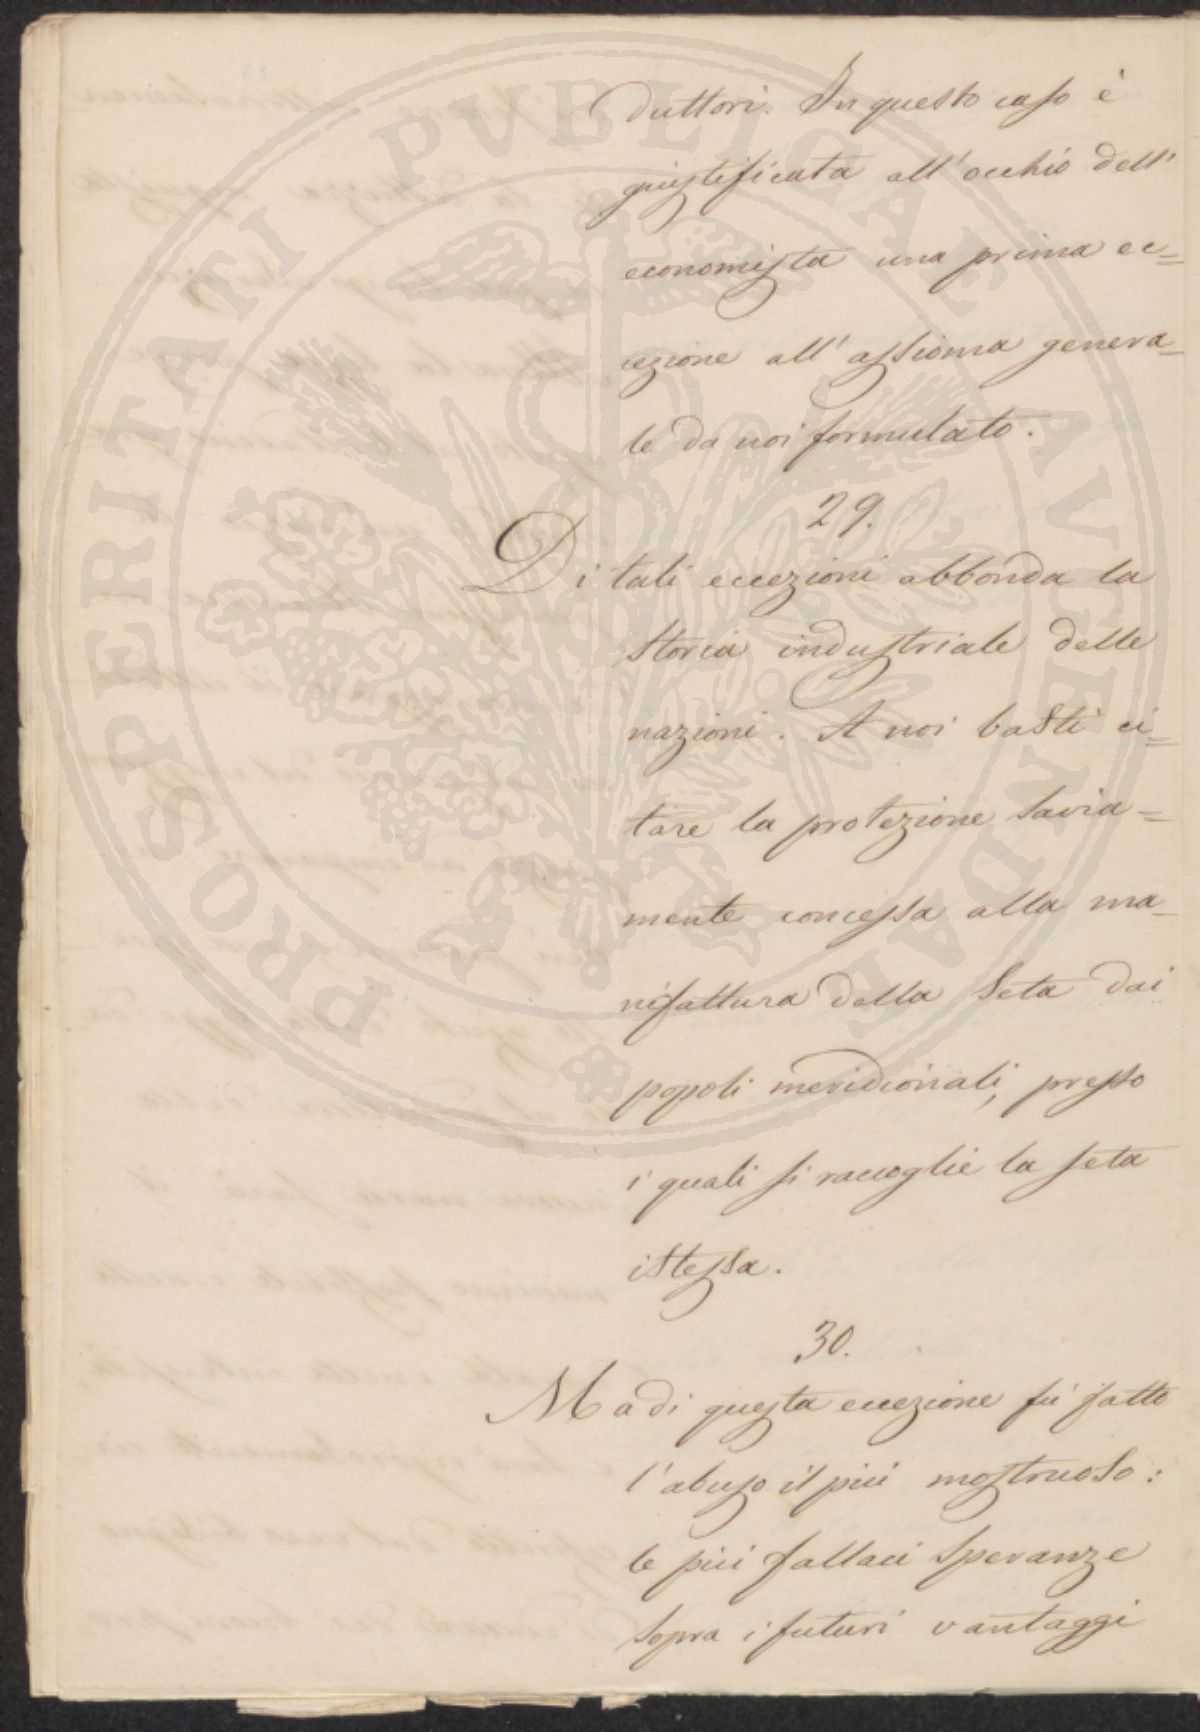 duttori. In questo caso è
giustificata all' occhio dell'
economista una prima ec=
cezione all' assioma genera=
le da noi formulato.
29.
Di tali eccezioni abbonda la
storia industriale delle
nazioni. A noi basti ci=
tare la protezione savia=
mente concessa alla ma=
nifattura della seta dai
popoli meridionali, presso
i quali si raccoglie la seta
istessa.
30.
Ma di questa eccezione fù fatto
l'abuso il più mostruoso:
le più fallaci speranze
sopra i futuri vantaggi
PROSPERITATI PVBLICAE AVGENDAE